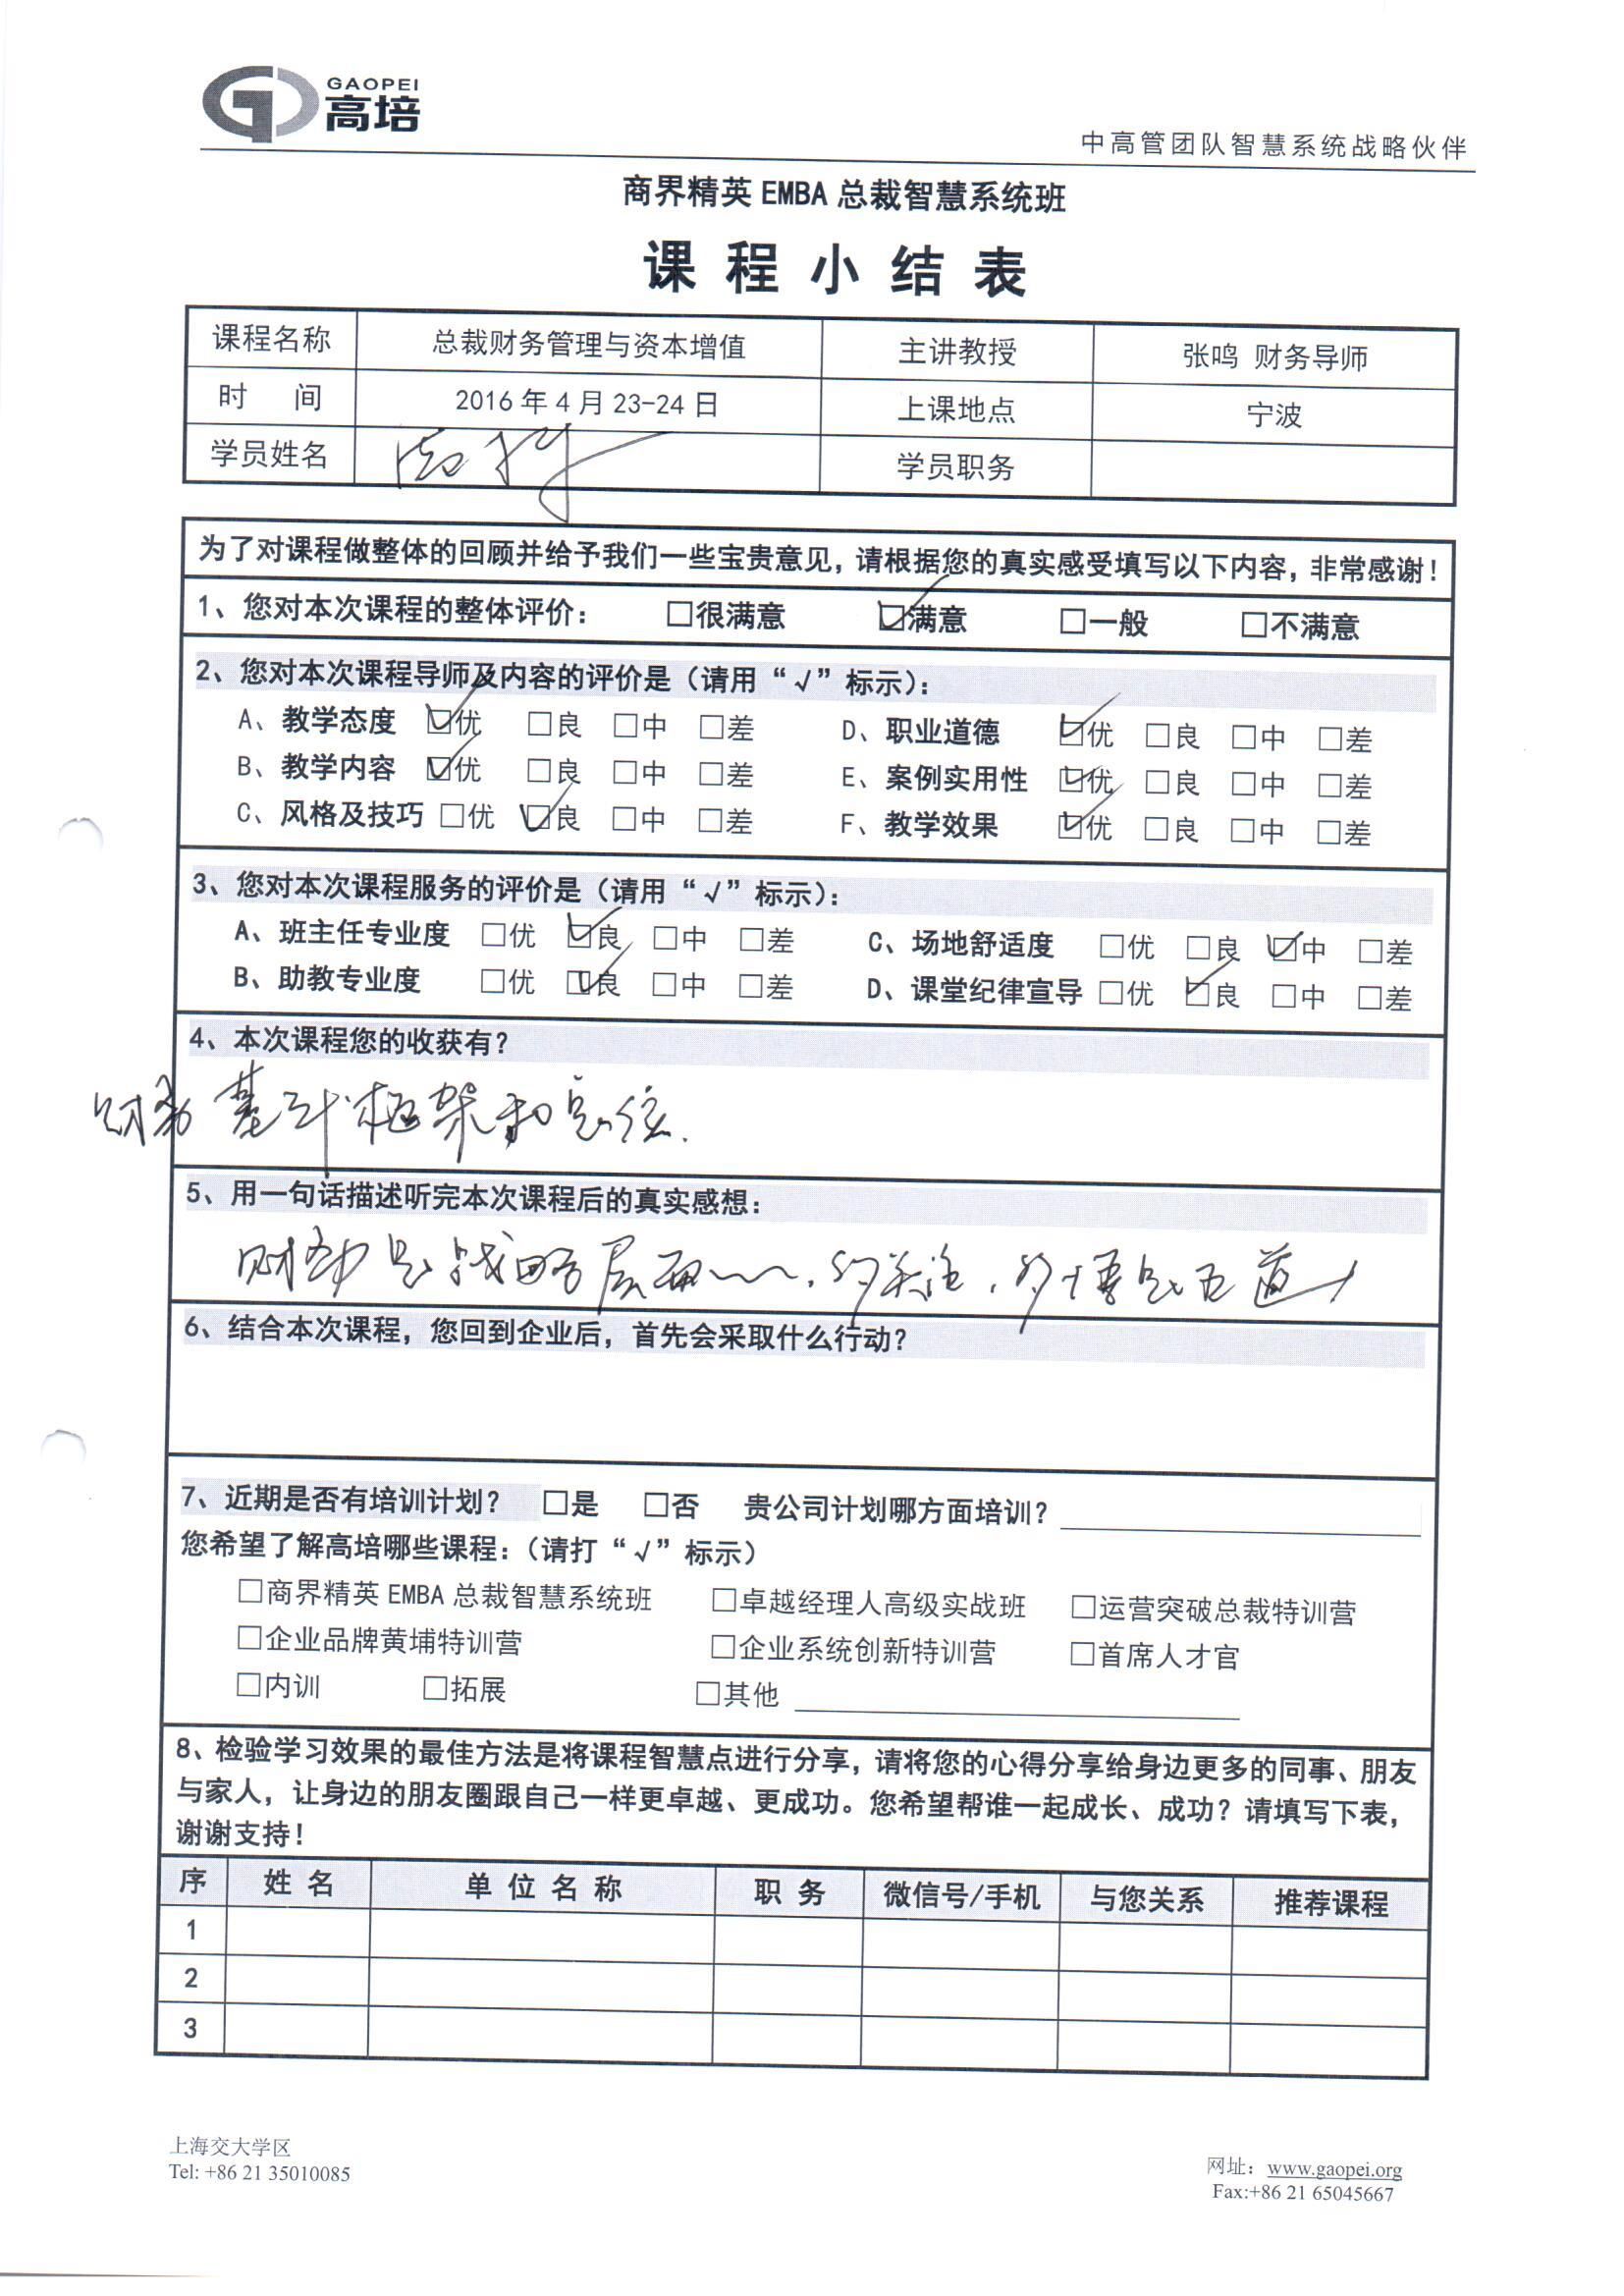 GAOPEI
高培
中高管团队智慧系统战略伙伴
商界精英 EMBA 总裁智慧系统班
课程小结表
课程名称 总裁财务管理与资本增值 主讲教授 张鸣 财务导师
时 间 2016 年 4 月 23-24 日 上课地点 宁波
学员姓名 学员职务
为了对课程做整体的回顾并给予我们一些宝贵意见，请根据您的真实感受填写以下内容，非常感谢！
1、您对本次课程的整体评价： □很满意 ☑满意 □一般 □不满意
2、您对本次课程导师及内容的评价是（请用“√”标示）：
A、教学态度 ☑优 □良 □中 □差 D、职业道德 ☑优 □良 □中 □差
B、教学内容 ☑优 □良 □中 □差 E、案例实用性 ☑优 □良 □中 □差
C、风格及技巧 □优 ☑良 □中 □差 F、教学效果 ☑优 □良 □中 □差
3、您对本次课程服务的评价是（请用“√”标示）：
A、班主任专业度 □优 ☑良 □中 □差 C、场地舒适度 □优 □良 ☑中 □差
B、助教专业度 □优 ☑良 □中 □差 D、课堂纪律宣导 □优 ☑良 □中 □差
4、本次课程您的收获有？
财务基础框架和定位.
5、用一句话描述听完本次课程后的真实感想：
财务是战略层面
6、结合本次课程，您回到企业后，首先会采取什么行动？
7、近期是否有培训计划？ □是 □否 贵公司计划哪方面培训？
您希望了解高培哪些课程：（请打“√”标示）
□商界精英 EMBA 总裁智慧系统班 □卓越经理人高级实战班 □运营突破总裁特训营
□企业品牌黄埔特训营 □企业系统创新特训营 □首席人才官
□内训 □拓展 □其他
8、检验学习效果的最佳方法是将课程智慧点进行分享，请将您的心得分享给身边更多的同事、朋友
与家人，让身边的朋友圈跟自己一样更卓越、更成功。您希望帮谁一起成长、成功？请填写下表，
谢谢支持！
序 姓 名 单 位 名 称 职 务 微信号/手机 与您关系 推荐课程
1
2
3
上海交大学区
Tel: +86 21 35010085
网址：www.gaopei.org
Fax:+86 21 65045667